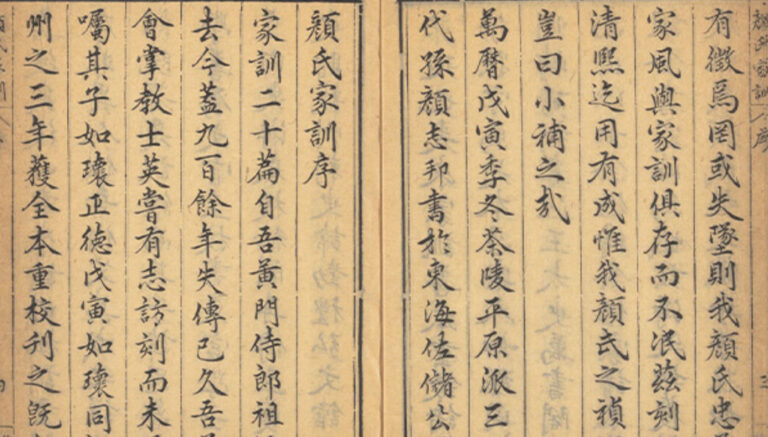 有徵焉罔或失墜則我顏氏忠
家風與家訓俱存而不泯茲刻
清熙迄用有成惟我顏氏之禎
豈曰小補之哉
萬曆戊寅季冬茶陵平原派三
代孫顏志邦書於東海佐儲公
顏氏家訓序
家訓二十篇自吾黃門侍郎祖
去今葢九百餘年失傳已久吾
會掌教士英嘗有志訪刻而未
囑其子如瓌正德戊寅如瓌同
州之三年獲全本重校刊之旣